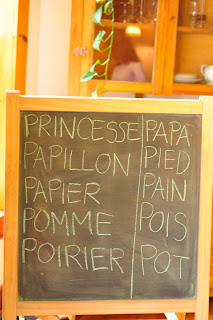 PRINCESSE PAPA
PAPILLON PIED
PAPIER PAIN
POMME POIS
POIRIER POT